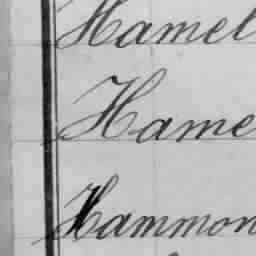 Hamel
Hame
Hammon